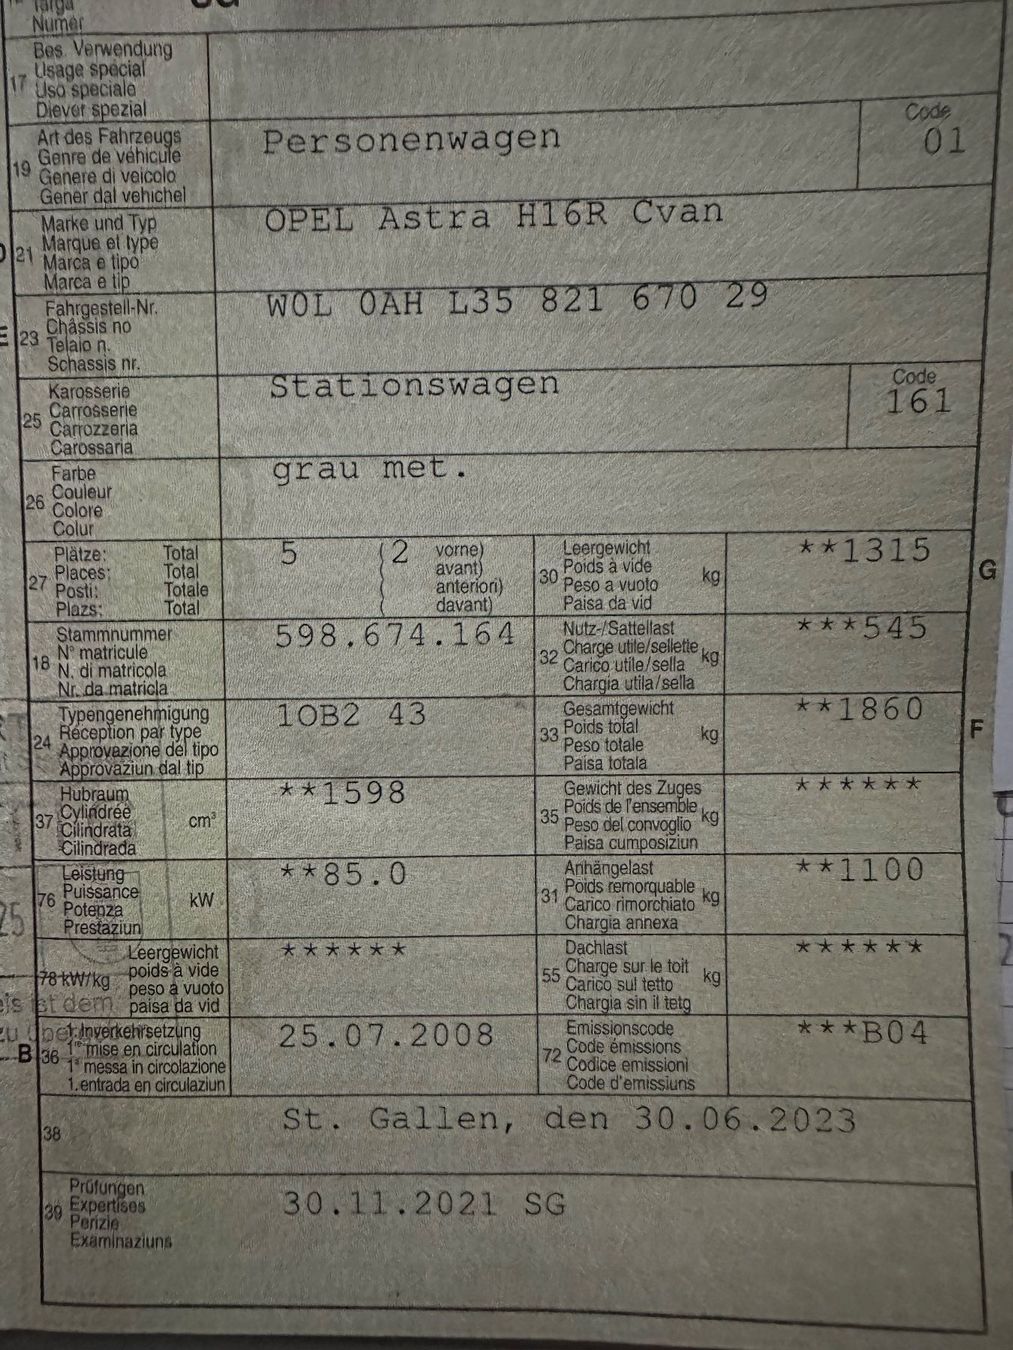 Targa
Numer
17 Bes. Verwendung
Usage spécial
Uso speciale
Diever spezial
19 Art des Fahrzeugs
Genre de véhicule
Genere di veicolo
Gener dal vehichel
Personenwagen
Code
01
21 Marke und Typ
Marque et type
Marca e tipo
Marca e tip
OPEL Astra H16R Cvan
E 23 Fahrgestell-Nr.
Châssis no
Telaio n.
Schassis nr.
W0L 0AH L35 821 670 29
25 Karosserie
Carrosserie
Carrozzeria
Carossaria
Stationswagen
Code
161
26 Farbe
Couleur
Colore
Colur
grau met.
27 Plätze: Total
Places: Total
Posti: Totale
Plazs: Total
5 (2 vorne)
( avant)
( anteriori)
( davant)
30 Leergewicht
Poids à vide
Peso a vuoto
Paisa da vid
kg
**1315
G
18 Stammnummer
N° matricule
N. di matricola
Nr. da matricla
598.674.164
32 Nutz-/Sattellast
Charge utile/sellette
Carico utile/sella
Chargia utila/sella
kg
***545
24 Typengenehmigung
Réception par type
Approvazione del tipo
Approvaziun dal tip
1OB2 43
33 Gesamtgewicht
Poids total
Peso totale
Paisa totala
kg
**1860
F
37 Hubraum
Cylindrée
Cilindrata
Cilindrada
cm³
**1598
35 Gewicht des Zuges
Poids de l'ensemble
Peso del convoglio
Paisa cumposiziun
kg
******
76 Leistung
Puissance
Potenza
Prestaziun
kW
**85.0
31 Anhängelast
Poids remorquable
Carico rimorchiato
Chargia annexa
kg
**1100
78 kW/kg Leergewicht
poids à vide
peso a vuoto
paisa da vid
******
55 Dachlast
Charge sur le toit
Carico sul tetto
Chargia sin il tetg
kg
******
B 36 1. Inverkehrsetzung
1re mise en circulation
1a messa in circolazione
1. entrada en circulaziun
25.07.2008
72 Emissionscode
Code émissions
Codice emissioni
Code d'emissiuns
***B04
38 St. Gallen, den 30.06.2023
39 Prüfungen
Expertises
Perizie
Examinaziuns
30.11.2021 SG